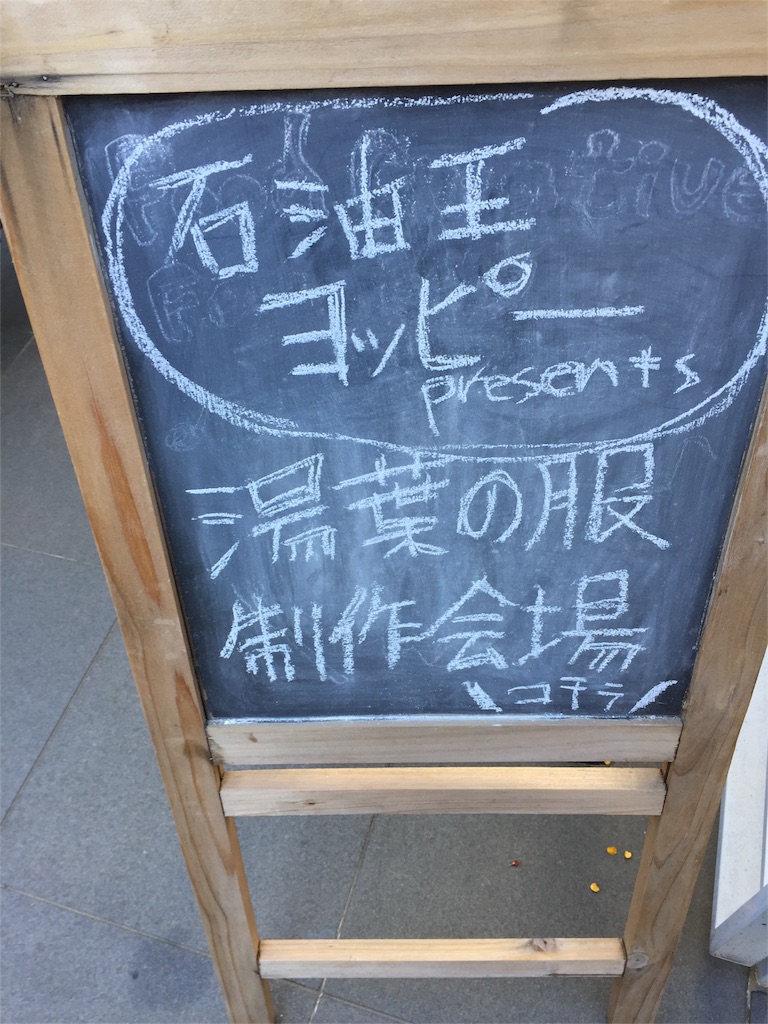 石油王
ヨッピー
presents
湯葉の服
制作会場
\コチラ/